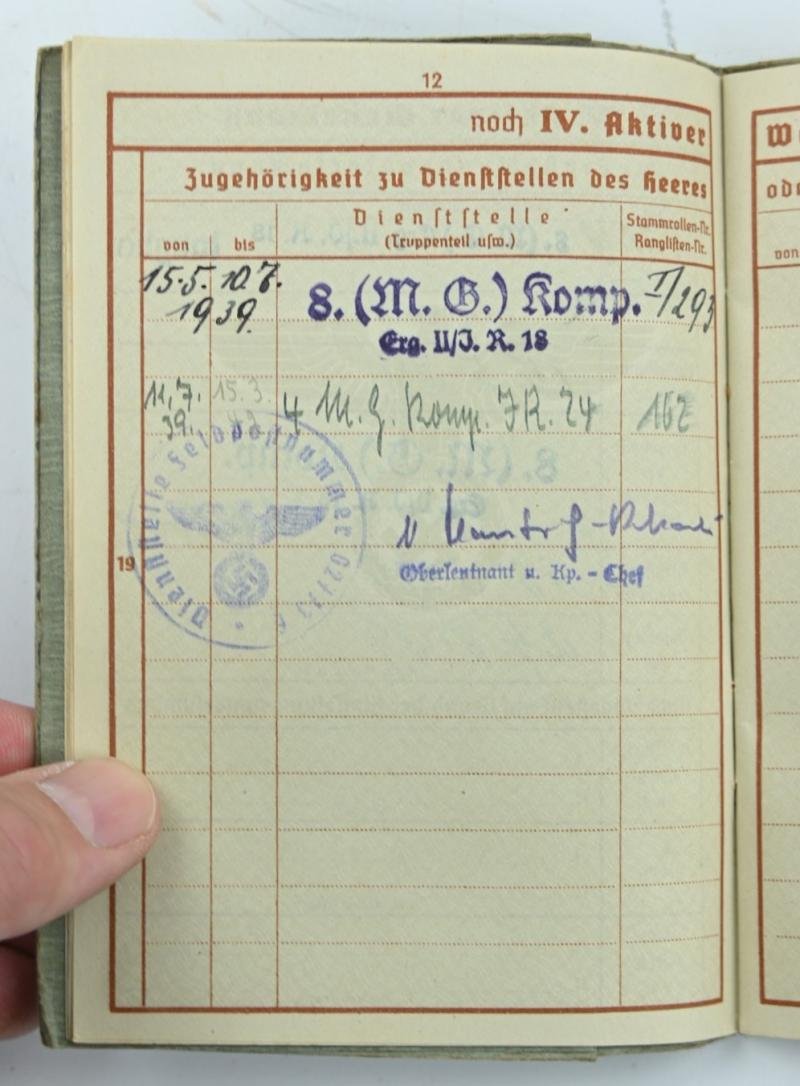 12
noch IV. Aktiver
W
Zugehörigkeit zu Dienststellen des Heeres
ode
von
bis
Dienststelle
(Truppenteil usw.)
Stammrollen-Nr.
Ranglisten-Nr.
von
15.5. 10.7.
1939.
8. (M. G.) Komp.
Erg. II/J. R. 18
I/293
11.7.
39.
15.3.
4 M. G. Komp. J.R. 24
162
Dienststelle Feldpostnummer
Oberleutnant u. Kp. - Chef
19